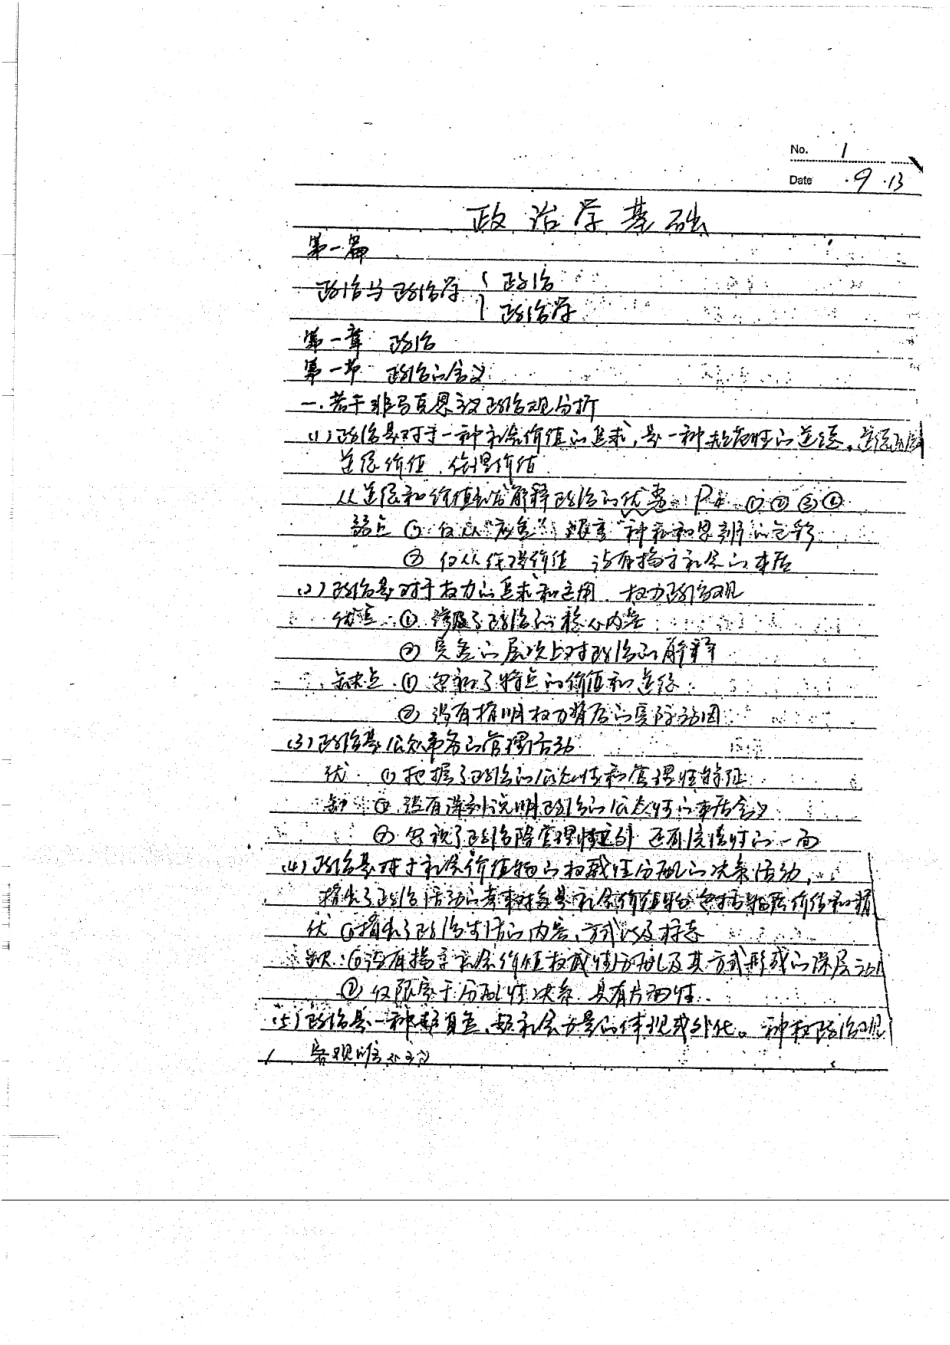 No. 1
Date ·9·13
政治学基础
第一篇
政治与政治学 { 政治
政治学
第一章 政治
第一节 政治的含义
一.若干非马克思主义政治观分析
(1)政治是对于一种社会价值的追求,是一种规范性的道德。
道德价值、伦理价值
从道德和价值 解释政治的优点: P4 ①②③④
弱点 ① 仅从"应然" 种 和思辨的色彩
② 仅从伦理价值 没有揭示社会的本质
(2)政治是对于权力的追求和运用、权力政治观
优点:① 了政治的核心内容
② 的层次上对政治的解释
缺点 ① 忽视了 的价值和道德
② 没有指明权力背后的实际动因
(3)政治是公众事务的管理活动
优 ①把握了政治的公众性和管理性特征
缺 ① 没有深刻说明政治的公众性的本质含义
② 忽视了政治除管理性之外 还有 的一面
(4)政治是对于社会价值物的权威性分配的决策活动,
指出了政治活动的 是社会价值物 包括物质价值和精
优 ①指出了政治生活的内容、方式以及标志
缺:①没有揭示社会价值权威性分配及其方式形成的深层动因
② 仅限定于分配性决策 具有片面性
(5)政治是一种超自然、超社会力量的体现或外化。神权政治观
客观唯心主义